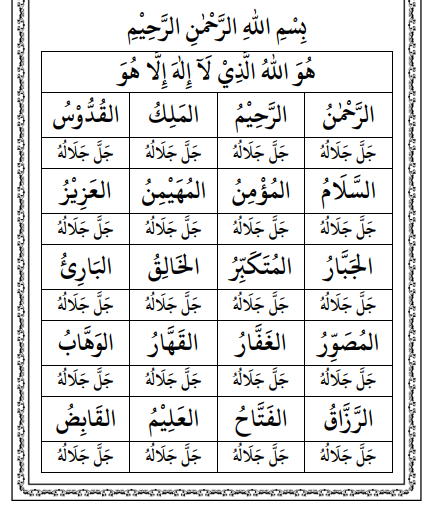 بِسْمِ اللهِ الرَّحْمٰنِ الرَّحِيْمِ
هُوَ اللهُ الَّذِيْ لَآ إِلٰهَ إِلَّا هُوَ
الرَّحْمٰنُ الرَّحِيْمُ المَلِكُ القُدُّوْسُ
جَلَّ جَلَالُهُ جَلَّ جَلَالُهُ جَلَّ جَلَالُهُ جَلَّ جَلَالُهُ
السَّلَامُ المُؤْمِنُ المُهَيْمِنُ العَزِيْزُ
جَلَّ جَلَالُهُ جَلَّ جَلَالُهُ جَلَّ جَلَالُهُ جَلَّ جَلَالُهُ
الجَبَّارُ المُتَكَبِّرُ الخَالِقُ البَارِئُ
جَلَّ جَلَالُهُ جَلَّ جَلَالُهُ جَلَّ جَلَالُهُ جَلَّ جَلَالُهُ
المُصَوِّرُ الغَفَّارُ القَهَّارُ الوَهَّابُ
جَلَّ جَلَالُهُ جَلَّ جَلَالُهُ جَلَّ جَلَالُهُ جَلَّ جَلَالُهُ
الرَّزَّاقُ الفَتَّاحُ العَلِيْمُ القَابِضُ
جَلَّ جَلَالُهُ جَلَّ جَلَالُهُ جَلَّ جَلَالُهُ جَلَّ جَلَالُهُ